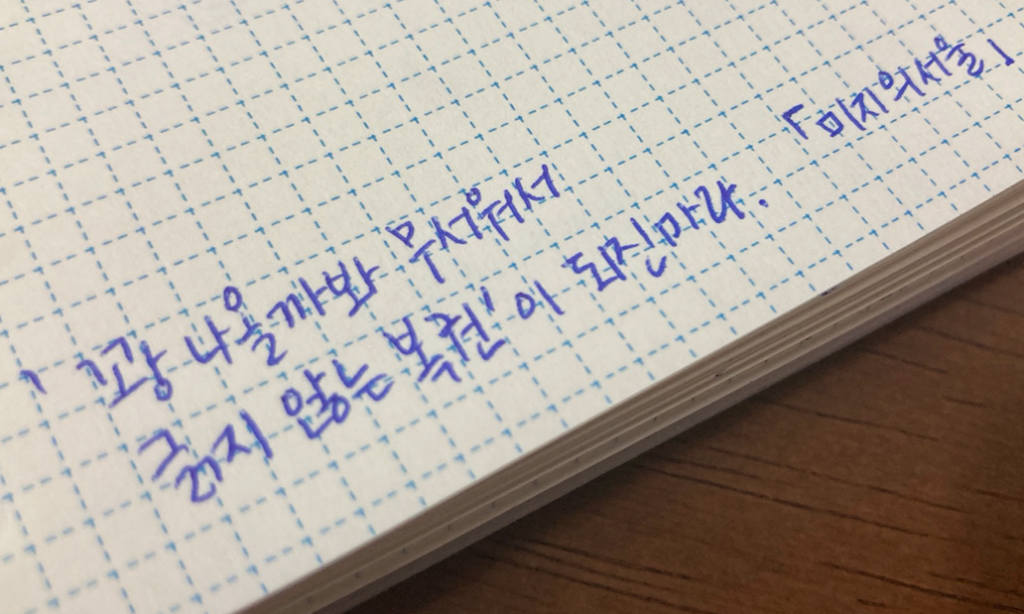 「미지의서울」
'꽝 나올까봐 무서워서
긁지 않는 복권'이 되진마라.